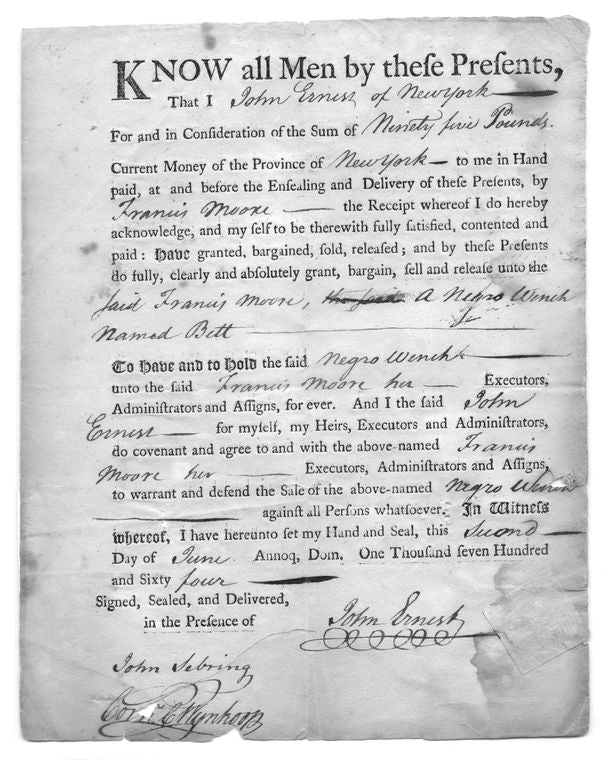 KNOW all Men by theſe Preſents,
That I John Ernest of New York
For and in Conſideration of the Sum of Ninety five Pounds.
Current Money of the Province of New York — to me in Hand
paid, at and before the Enſealing and Delivery of theſe Preſents, by
Francis Moore — the Receipt whereof I do hereby
acknowledge, and my ſelf to be therewith fully ſatisfied, contented and
paid: Have granted, bargained, ſold, releaſed; and by theſe Preſents
do fully, clearly and abſolutely grant, bargain, ſell and releaſe unto the
said Francis Moore, the said A Negro Wench
Named Bett
To Have and to Hold the ſaid Negro Wench
unto the ſaid Francis Moore her — Executors,
Adminiſtrators and Aſſigns, for ever. And I the ſaid John
Ernest — for myſelf, my Heirs, Executors and Adminiſtrators,
do covenant and agree to and with the above-named Francis
Moore her — Executors, Adminiſtrators and Aſſigns,
to warrant and defend the Sale of the above-named Negro Wench
— againſt all Perſons whatſoever. In Witneſs
whereof, I have hereunto ſet my Hand and Seal, this Second
Day of June. Annoq; Dom. One Thouſand ſeven Hundred
and Sixty four
Signed, Sealed, and Delivered,
in the Preſence of
John Ernest
John Sebring
Corns. C Wynkoop